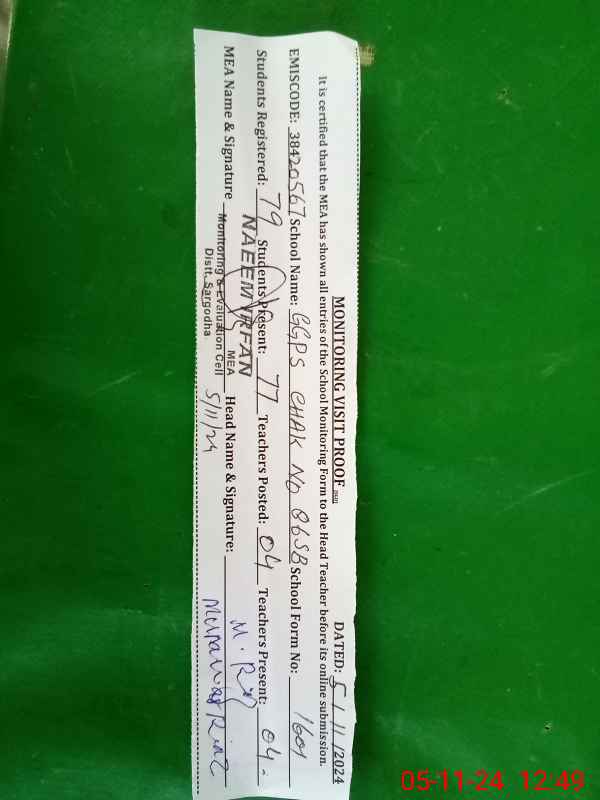 MONITORING VISIT PROOF DATED: 5/11/2024
It is certified that the MEA has shown all entries of the School Monitoring Form to the Head Teacher before its online submission.
EMISCODE: 38420567 School Name: GGPS CHAK NO 86SB School Form No: 1601
Students Registered: 79 Students Present: 77 Teachers Posted: 04 Teachers Present: 04-
NAEEM IRFAN
MEA Name & Signature Head Name & Signature: M. Riaz
MEA
Monitoring & Evaluation Cell
Distt. Sargodha
5/11/24
Riaz
05-11-24 12:49